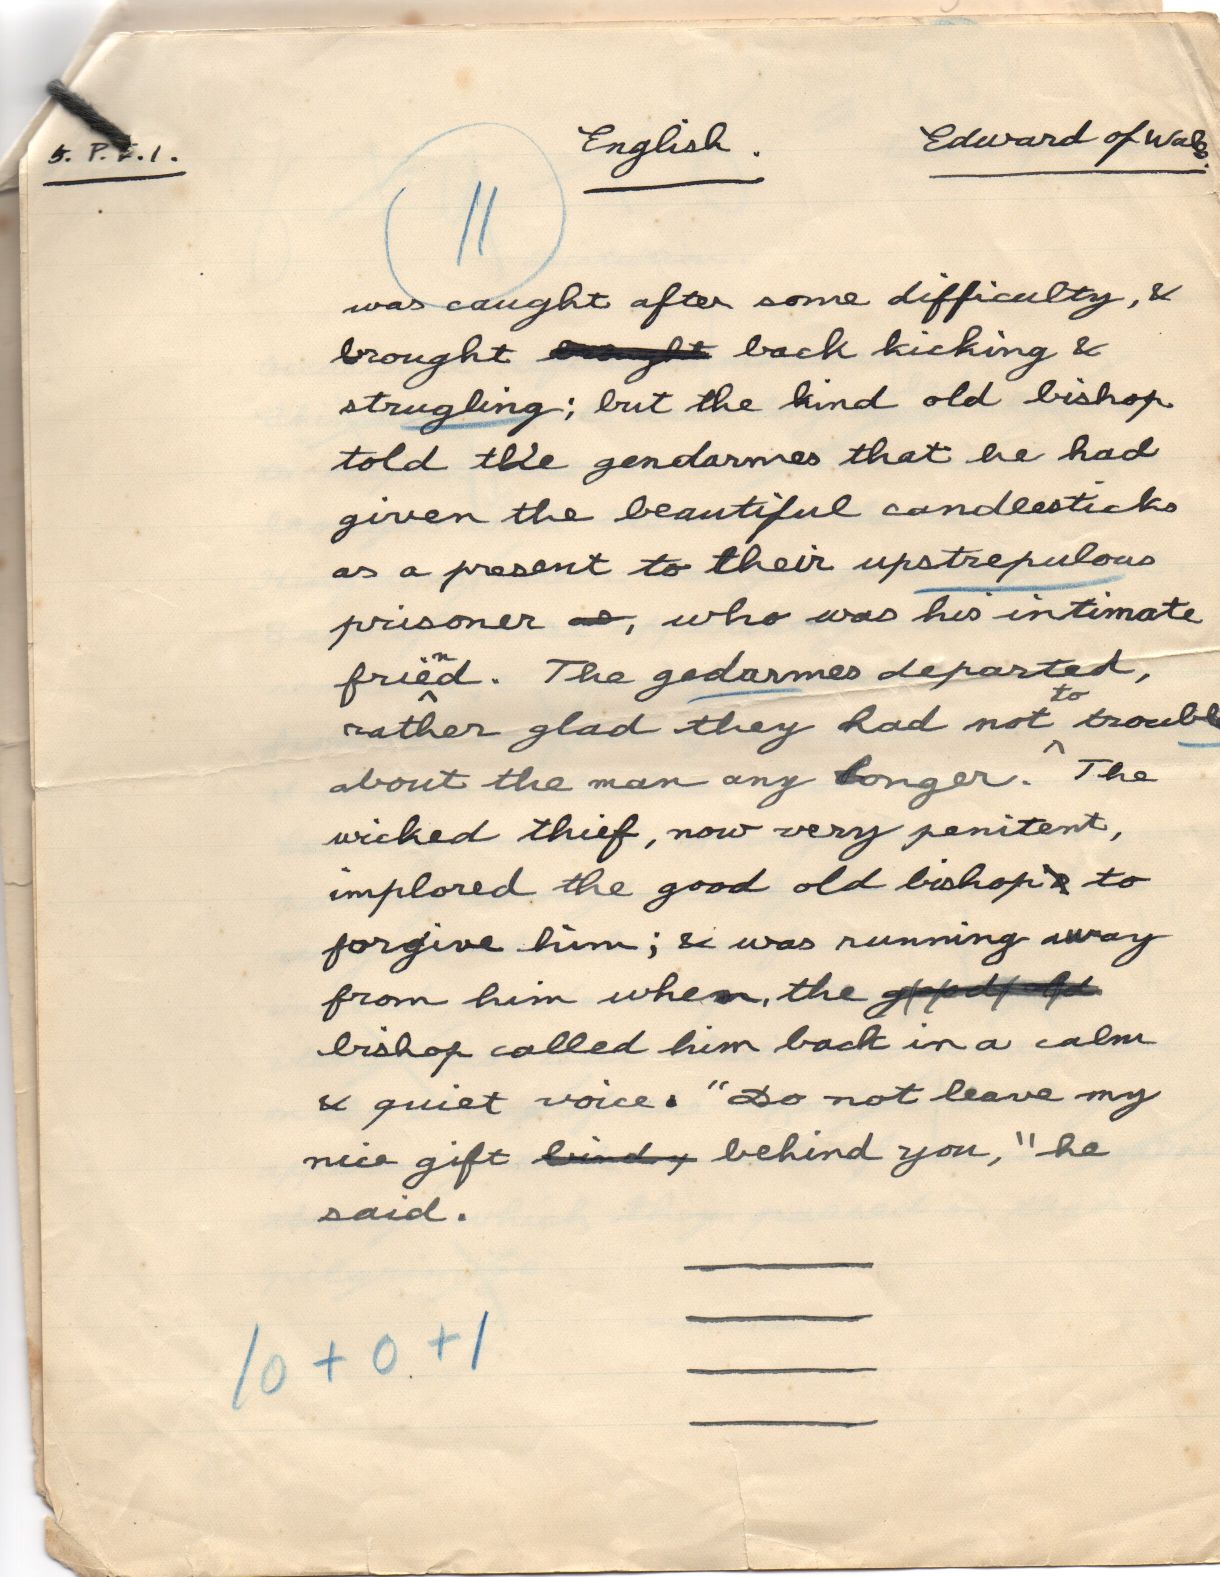 5. P. E. 1. English. Edward of Wales.
11
was caught after some difficulty, &
brought brought back kicking &
strugling; but the kind old bishop
told the gendarmes that he had
given the beautiful candlesticks
as a present to their upstrepulous
prisoner as, who was his intimate
friend. The gedarmes departed,
rather glad they had not to trouble
about the man any longer. The
wicked thief, now very penitent,
implored the good old bishop to
forgive him; & was running away
from him when, the good old
bishop called him back in a calm
& quiet voice. "Do not leave my
nice gift behind you," he
said.
10 + 0 + 1